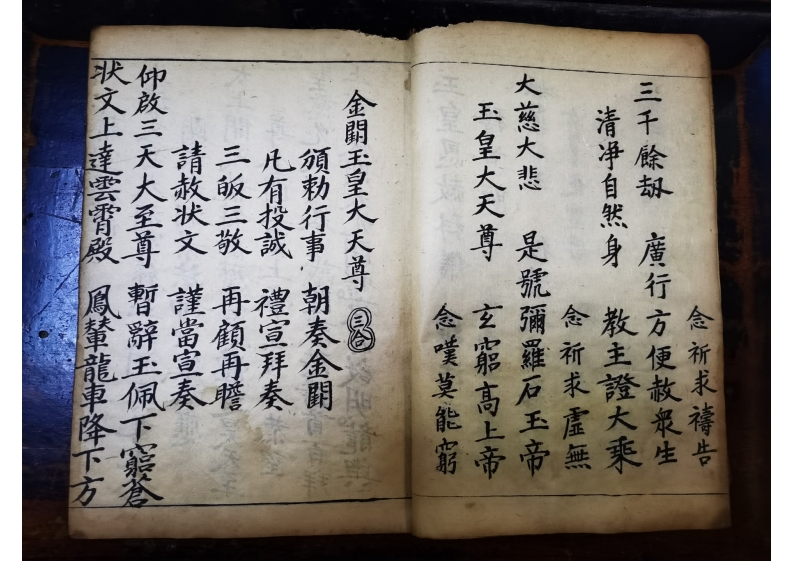 念祈求禱告
三千餘劫 廣行方便赦衆生
清净自然身 教主證大乘
念祈求虛無
大慈大悲 是號彌羅石玉帝
玉皇大天尊 玄窮高上帝
念噗莫能窮
金闕玉皇大天尊 三合
頒勅行事 朝奏金闕
凡有投誠 禮宣拜奏
三皈三敬 再顧再瞻
請赦状文 謹當宣奏
仰啟三天大至尊 暫辭玉佩下窮蒼
状文上達雲霄殿 鳳輦龍車降下方